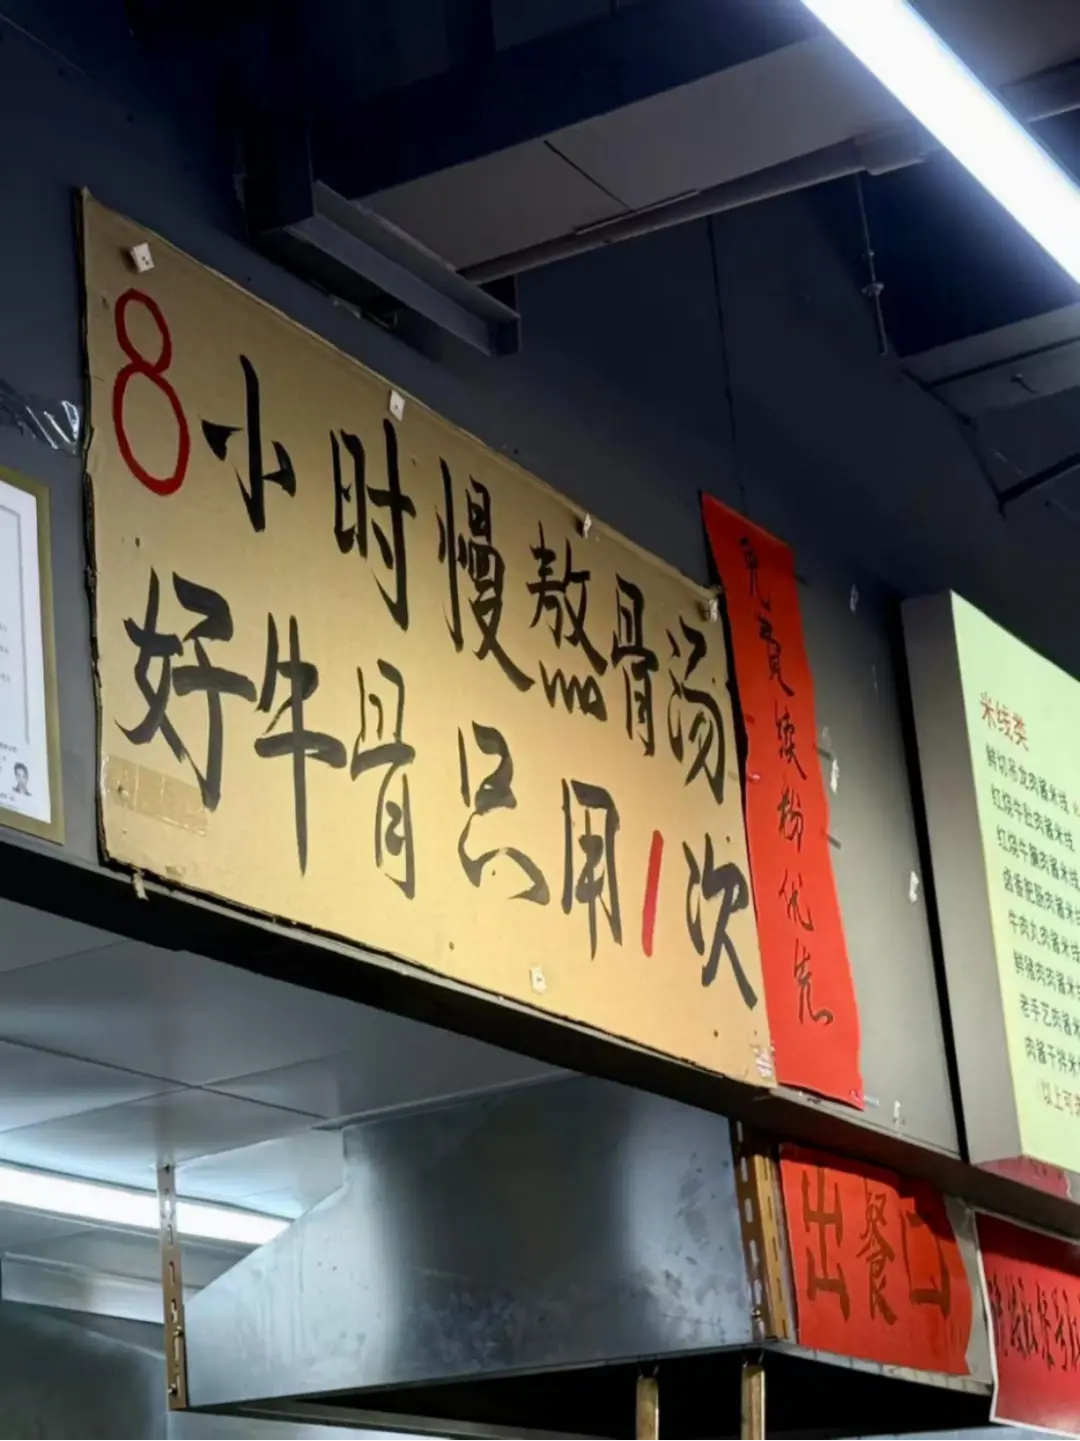 8小时慢熬骨汤
好牛骨只用1次
免费续粉优先
米线类
鲜切吊龙肉酱米线
红烧牛肚肉酱米线
红烧牛腩肉酱米线
卤香肥肠肉酱米线
牛肉丸肉酱米线
鲜猪肉肉酱米线
老手艺肉酱米
肉酱干拌米
以上可
出餐口